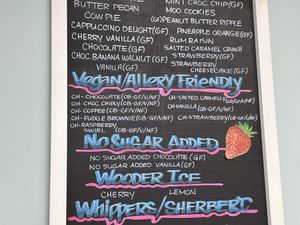 BUTTER PECAN
MINT CHOC CHIP (GF)
COW PIE
MOO COOKIES
(GF) PEANUT BUTTER RIPPLE
CAPPUCCINO DELIGHT (GF)
PINEAPPLE ORANGE (GF)
CHERRY VANILLA (GF)
RUM RAISIN
CHOCOLATE (GF)
SALTED CARAMEL CRUNCH
CHOC. BANANA WALNUT (GF)
STRAWBERRY (GF)
VANILLA (GF)
STRAWBERRY
CHEESECAKE (GF)
Vegan/Allery Friendly
OH-CHOCOLATE (OB-GF/V/NF)
OH-SALTED CAMELL
OH-CHOC. CHIPXY (OB-GF/V/NF)
OH-VANILLA (OB-GF/V/NF)
OH-COFFEE (OB-GF/V/NF)
OH-FUDGE BROWNIE (OB-GF/V/NF)
OH-STRAWBERRY (OB-GF/V/NF)
OH-RASPBERRY
SWIRL (OB-GF/V/NF)
NO SUGAR ADDED
NO SUGAR ADDED CHOCOLATE (GF)
NO SUGAR ADDED VANILLA (GF)
WOODER ICE
CHERRY LEMON
WHIPPERS/SHERBERT